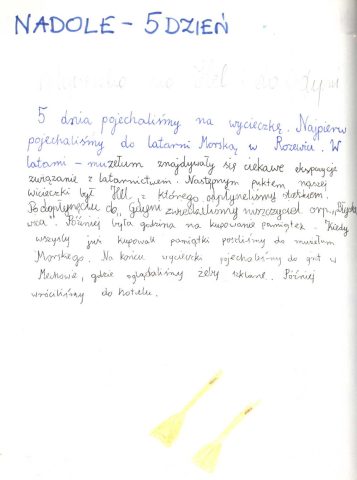 NADOLE - 5 DZIEŃ
5 dnia pojechaliśmy na wycieczkę. Najpierw
pojechaliśmy do latarni Morską w Rozewiu. W
latarni - muzeum znajdywały się ciekawe ekspozycje
związanie z latarnictwem. Następnym puktem naszej
wicieczki był Hel, z którego odpłyneliśmy statkiem.
Po dopłynięciu do Gdyni zwiedzaliśmy niszczyciel orp. „Błyska
wica". Póżniej była godzina na kupowanie pamiątek. Kiedy
wszyscy już kupowali pamiątki poszliśmy do muzeum
Morskiego. Na końcu wycieczki pojechaliśmy do grot w
Mechowie, gdzie oglądaliśmy zęby szklane. Póżniej
wróciliśmy do hotelu.